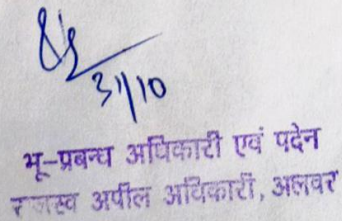 31/10
भू-प्रबन्ध अधिकारी एवं पदेन
राजस्व अपील अधिकारी, अलवर